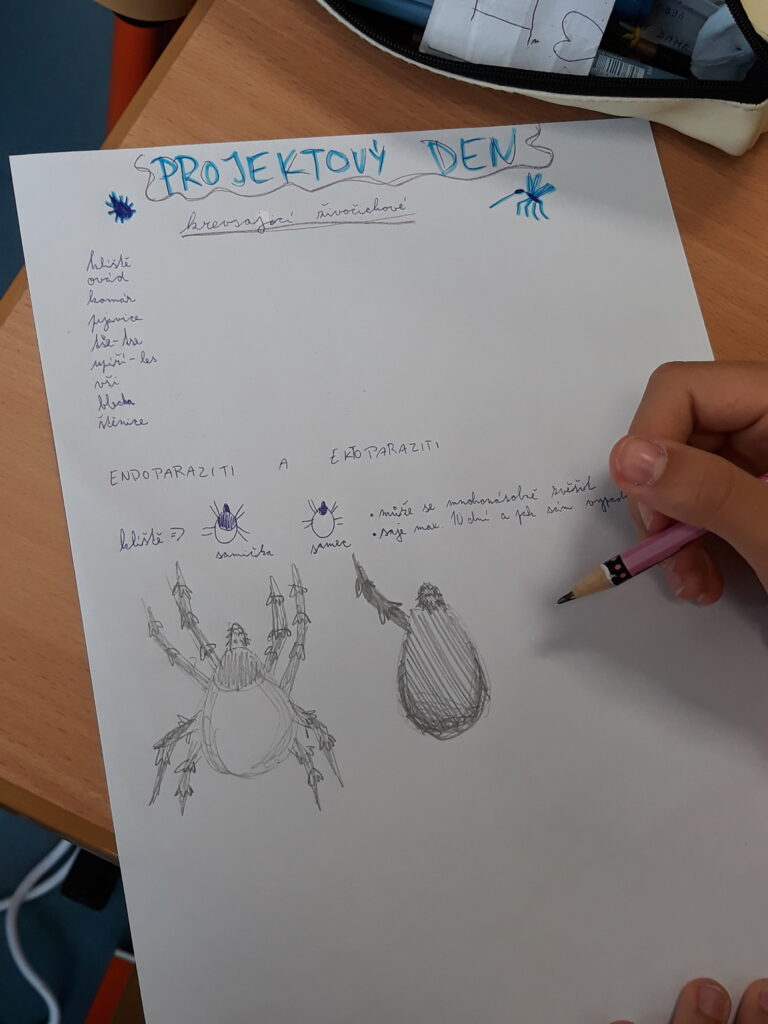 PROJEKTOVÝ DEN
krevsající živočichové
klíště
ovád
komár
pijavice
tse-tse
upíří-les
vši
blecha
štěnice
ENDOPARAZITI A EKTOPARAZITI
klíště => samička samec
• může se mnohonásobně zvěšit
• saje max. 10 dní a pak sám
DAME